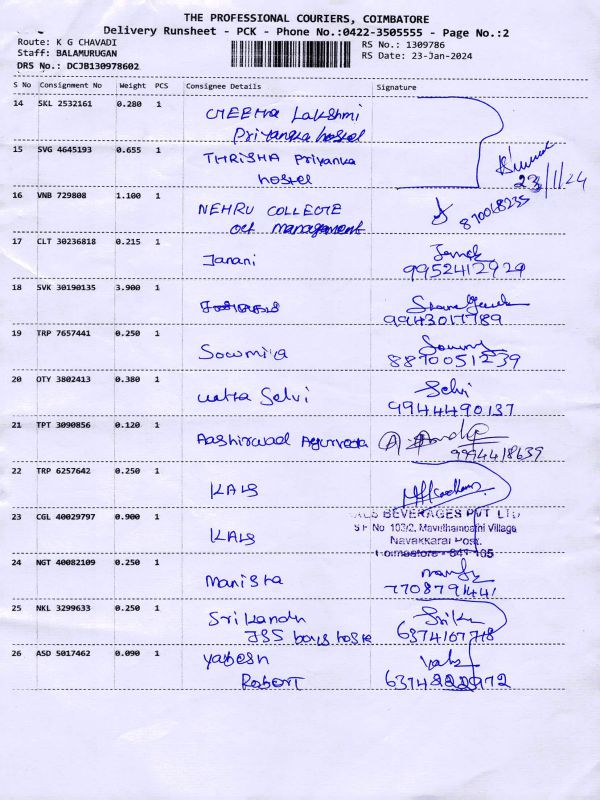 THE PROFESSIONAL COURIERS, COIMBATORE
Delivery Runsheet - PCK - Phone No.:0422-3505555 - Page No.:2
Route: K G CHAVADI
RS No.: 1309786
Staff: BALAMURUGAN
RS Date: 23-Jan-2024
DRS No.: DCJB130978602
S No Consignment No Weight PCS Consignee Details Signature
14 SKL 2532161 0.280 1 Lakshmi
Priyanka hostel
15 SVG 4645193 0.655 1 THRISHA Priyanka
hostel
23/1/24
16 VNB 729808 1.100 1 NEHRU COLLEGE
management
17 CLT 30236818 0.215 1 Janani
9952412929
18 SVK 30190135 3.900 1
9943017789
19 TRP 7657441 0.250 1 Sowmiya Sowmy
8870051239
20 OTY 3802413 0.380 1 Selvi Selvi
9944490137
21 TPT 3090856 0.120 1 Aashirwad Ayurveda
9994418639
22 TRP 6257642 0.250 1 KALS
23 CGL 40029797 0.900 1 KALS
KALS BEVERAGES PVT LTD
S F No 103/2, Mavuthampathi Village
Navakkarai Post,
Coimbatore - 641 105
24 NGT 40082109 0.250 1 Manisha
7708791441
25 NKL 3299633 0.250 1 Srikandh
JSS boys hoste
6374167718
26 ASD 5017462 0.090 1 Yabesh
Robert